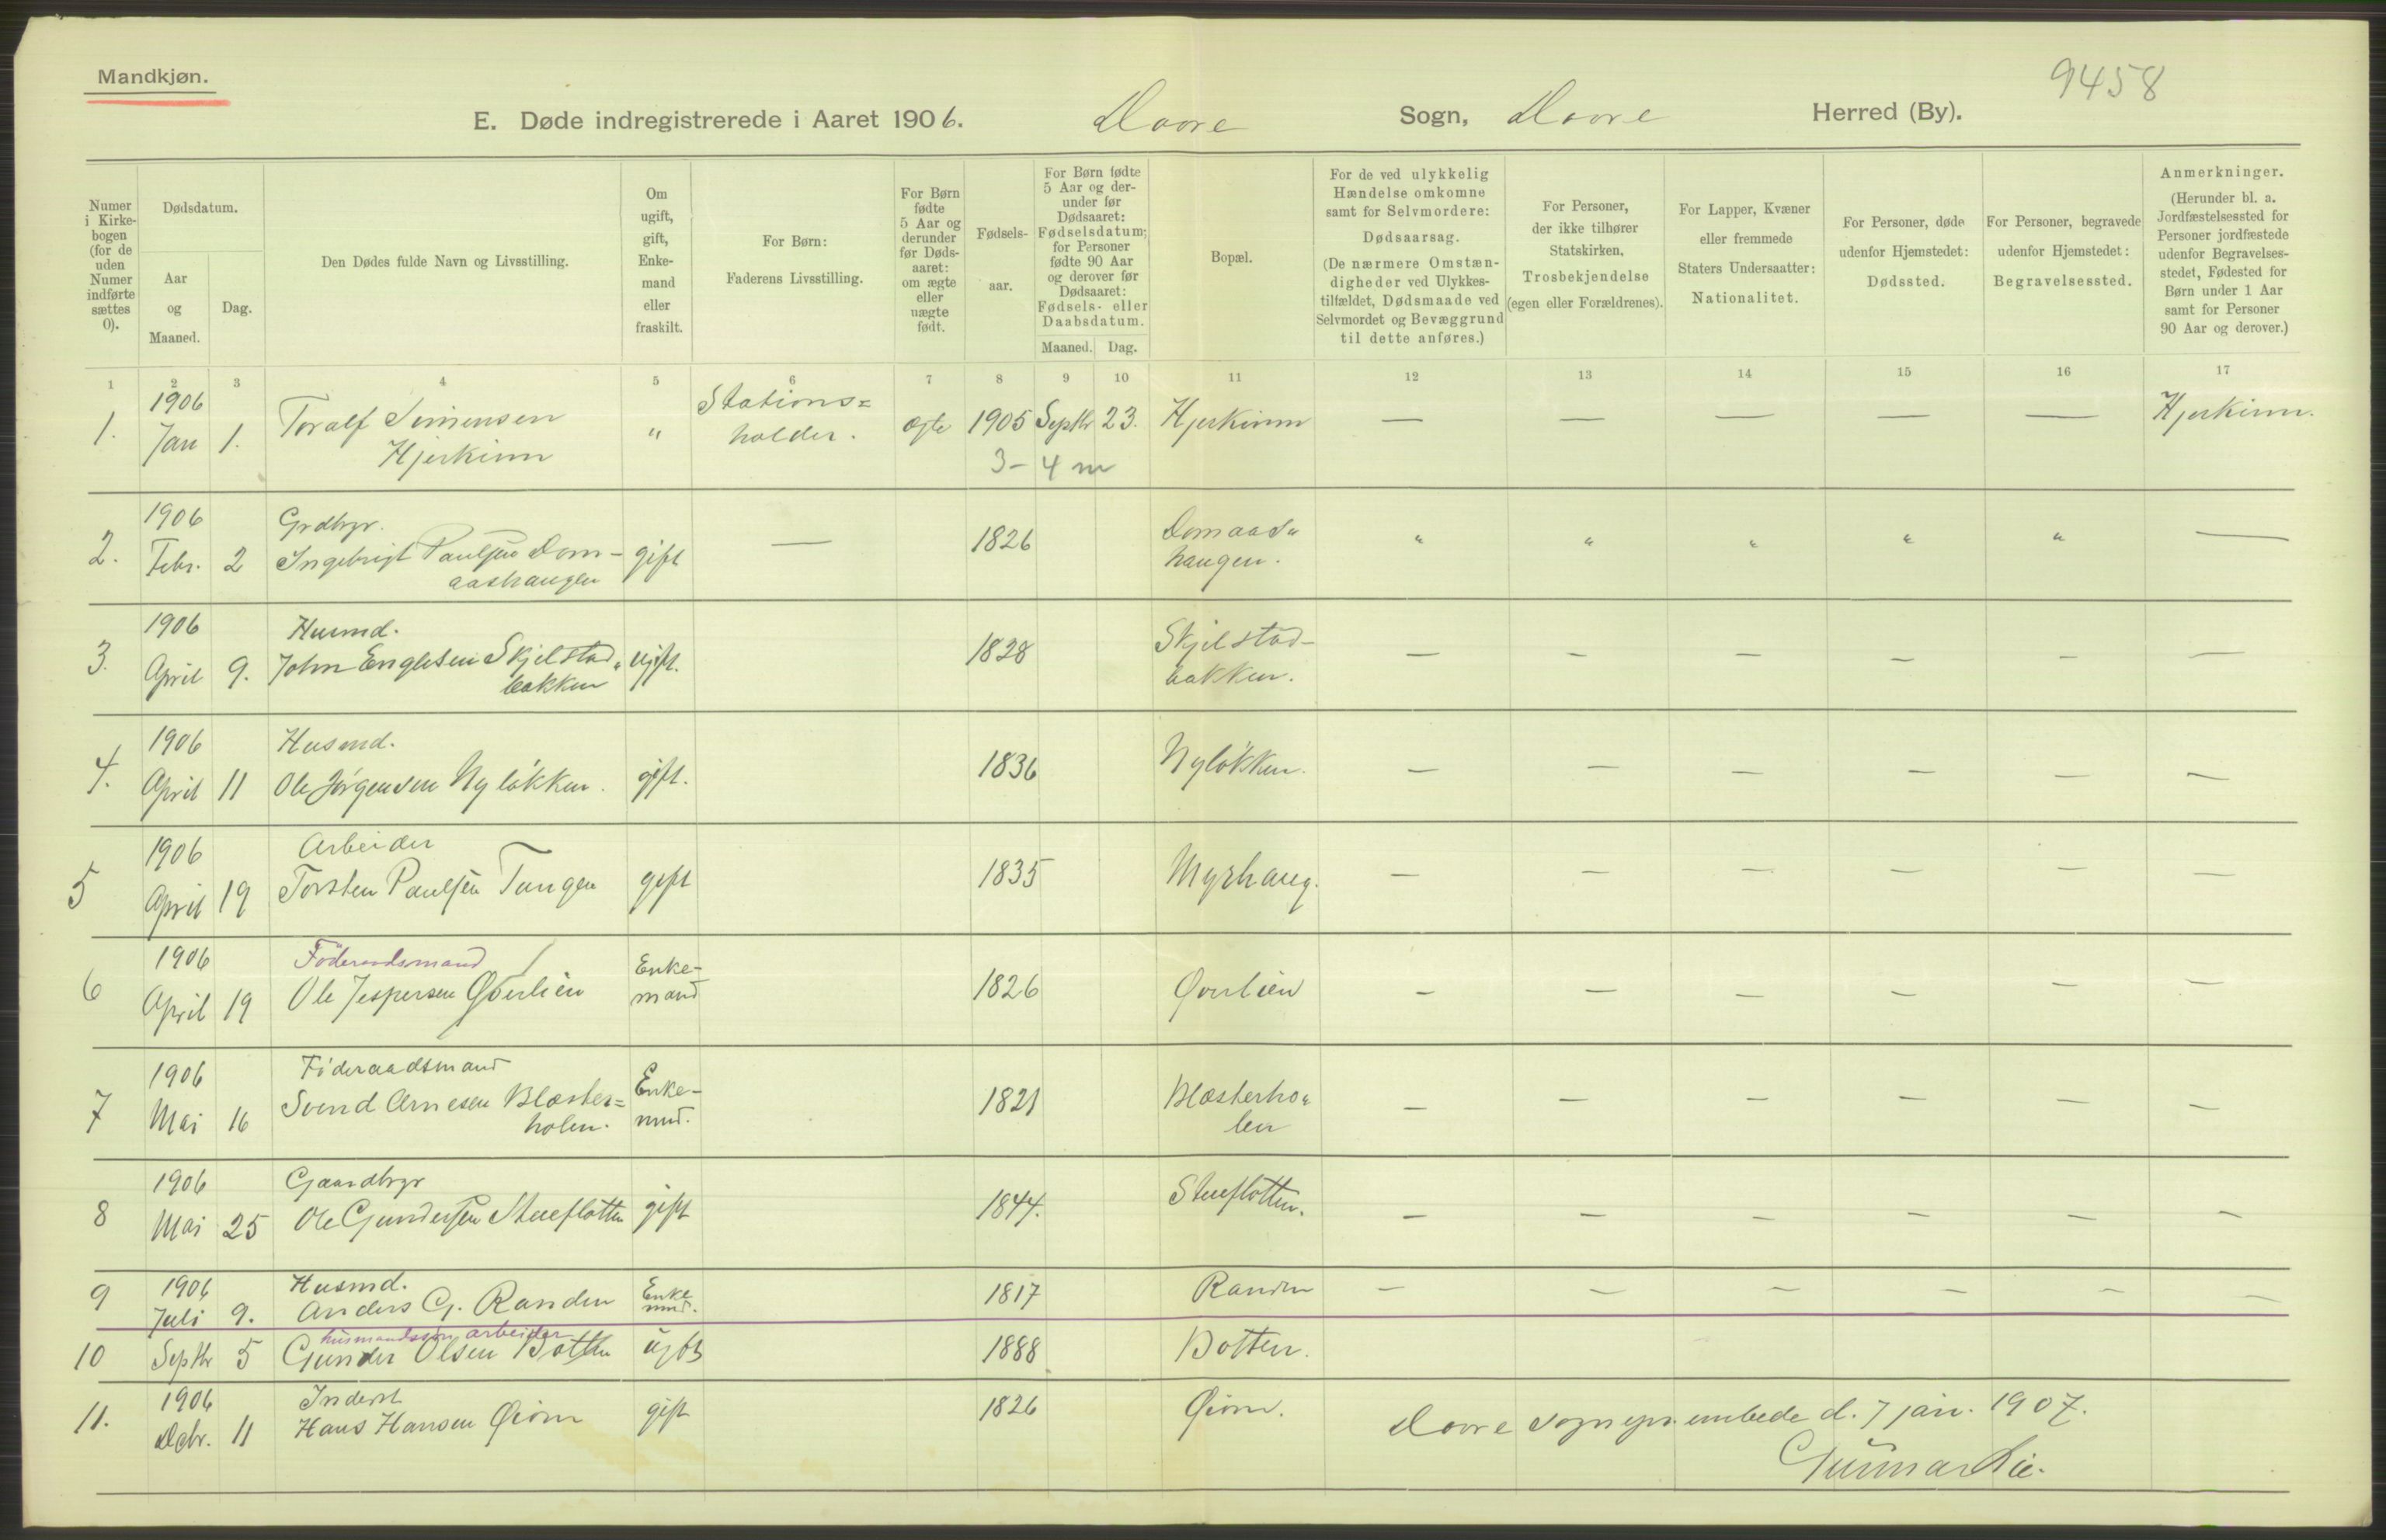 Mandkjøn.
9458
E. Døde indregistrerede i Aaret 1906. Dovre Sogn, Dovre Herred (By).
Numer i Kirkebogen (for de uden Numer indførte sættes 0).
Dødsdatum.
Aar og Maaned.
Dag.
Den Dødes fulde Navn og Livsstilling.
Om ugift, gift, Enkemand eller fraskilt.
For Børn:
Faderens Livsstilling.
For Børn fødte 5 Aar og derunder før Dødsaaret: om ægte eller uægte født.
Fødselsaar.
For Børn fødte 5 Aar og derunder før Dødsaaret: Fødselsdatum; for Personer fødte 90 Aar og derover før Dødsaaret: Fødsels- eller Daabsdatum.
Maaned. Dag.
Bopæl.
For de ved ulykkelig Hændelse omkomne samt for Selvmordere: Dødsaarsag. (De nærmere Omstændigheder ved Ulykkestilfældet, Dødsmaade ved Selvmordet og Bevæggrund til dette anføres.)
For Personer, der ikke tilhører Statskirken, Trosbekjendelse (egen eller Forældrenes).
For Lapper, Kvæner eller fremmede Staters Undersaatter: Nationalitet.
For Personer, døde udenfor Hjemstedet: Dødssted.
For Personer, begravede udenfor Hjemstedet: Begravelsessted.
Anmerkninger.
(Herunder bl. a. Jordfæstelsessted for Personer jordfæstede udenfor Begravelsesstedet, Fødested for Børn under 1 Aar samt for Personer 90 Aar og derover.)
1 2 3 4 5 6 7 8 9 10 11 12 13 14 15 16 17
1906 Stations=
1. Jan 1. Toralf Simensen " holder. ægte 1905 Septbr 23. Hjerkinn — — — — — Hjerkinn.
Hjerkinn 3-4 m
1906 Grdbgr. Domaas"
2. Febr. 2 Ingebrigt Paulsen Dom- gift — 1826 haugen. " " " " " —
aashaugen
1906 Husmd. Skjelstad-
3. April 9. John Englesen Skjelstad" ugift. 1828 bakken. — — — — — —
bakken
1906 Husmd.
4. April 11 Ole Jörgensen Nyløkken. gift. 1836 Nyløkken. — — — — — —
1906 Arbeider
5 April 19 Torsten Paulsen Tungen gift 1835 Myrhaug. — — — — — —
1906 Föderaadsmand Enke-
6 April 19 Ole Jespersen Øverlien mand 1826 Øverlien — — — — — —
1906 Föderaadsmand Enke-
7 Mai 16 Svend Arnesen Blæster= md. 1821 Blæsterho" — — — — — —
holen. len
1906 Gaardbgr
8 Mai 25 Ole Gundersen Stueflotten gift 1844. Stueflotten. — — — — — —
1906 Husmd. Enke
9 Juli 9. Anders G. Randen md. 1817 Randen — — — — — —
husmandssøn, arbeider
10 Septbr 5 Gunder Olsen Botten ugift 1888 Botten.
1906 Inderst
11. Dcbr. 11 Hans Hansen Øiom gift 1826 Øiom.
Dovre sognepr.embede d. 7 jan. 1907.
Gunnar Lie.